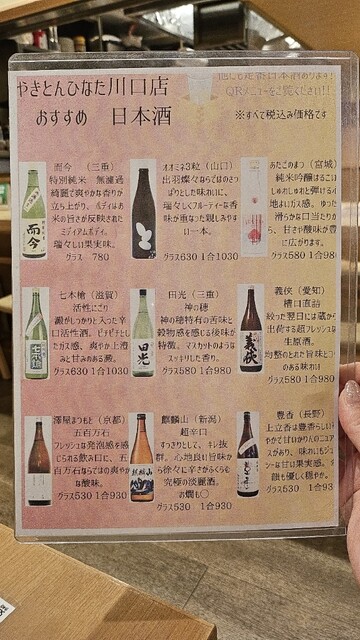 やきとんひなた川口店
おすすめ 日本酒
他にも定番日本酒あります!
QRメニューをご覧ください!!
※すべて税込み価格です
而今 (三重)
特別純米 無濾過
綺麗で爽やかな香りが
立ち上がり、ボディはお
米の旨さが反映された
ミディアムボディ。
瑞々しい果実味。
グラス 780
オオミネ3粒 (山口)
出羽燦々ならではのさっ
ぱりとした味わいに、
瑞々しくフルーティーな香
が重なった親しみやす
い一本。
グラス630 1合1030
あたごのまつ (宮城)
純米吟醸はるこい
しゅわしゅわと弾ける心
地よいガス感。ゆった
滑らかな口当たりか
ら、甘さが酸味が豊
に広がります。
グラス580 1合980
七本槍 (滋賀)
活性にごり
澱がしっかりと入った辛
口活性酒。ピチピチとし
たガス感、爽やか上澄
みと甘みのある澱。
グラス630 1合1030
田光 (三重)
神の穂
神の穂特有の苦味と
穀物感を感じる後味が
特徴。マスカットのような
スッキリした香り。
グラス580 1合980
義侠 (愛知)
槽口直詰
絞った翌日には蔵から
出荷する超フレッシュな
生原酒。
均整のとれた旨味とコ
のある味わい
グラス580 1合980
澤屋まつもと (京都)
五百万石
フレッシュな発泡感を感
じられる飲み口に、五
百万石ならではの爽やか
な酸味。
グラス530 1合930
麒麟山 (新潟)
超辛口
すっきりとして、キレ抜
群。心地良い旨味か
ら徐々に辛さがふくらむ
究極の淡麗酒。
お燗も〇
グラス530 1合930
豊香 (長野)
上立香は豊香らしい
やかで甘いかりんのニュア
スがあり、味わいもジュ
シーな甘い果実感。余
韻も優しく穏やか。
グラス530 1合930
而今
と
七本鎗
田光
義侠
麒麟山